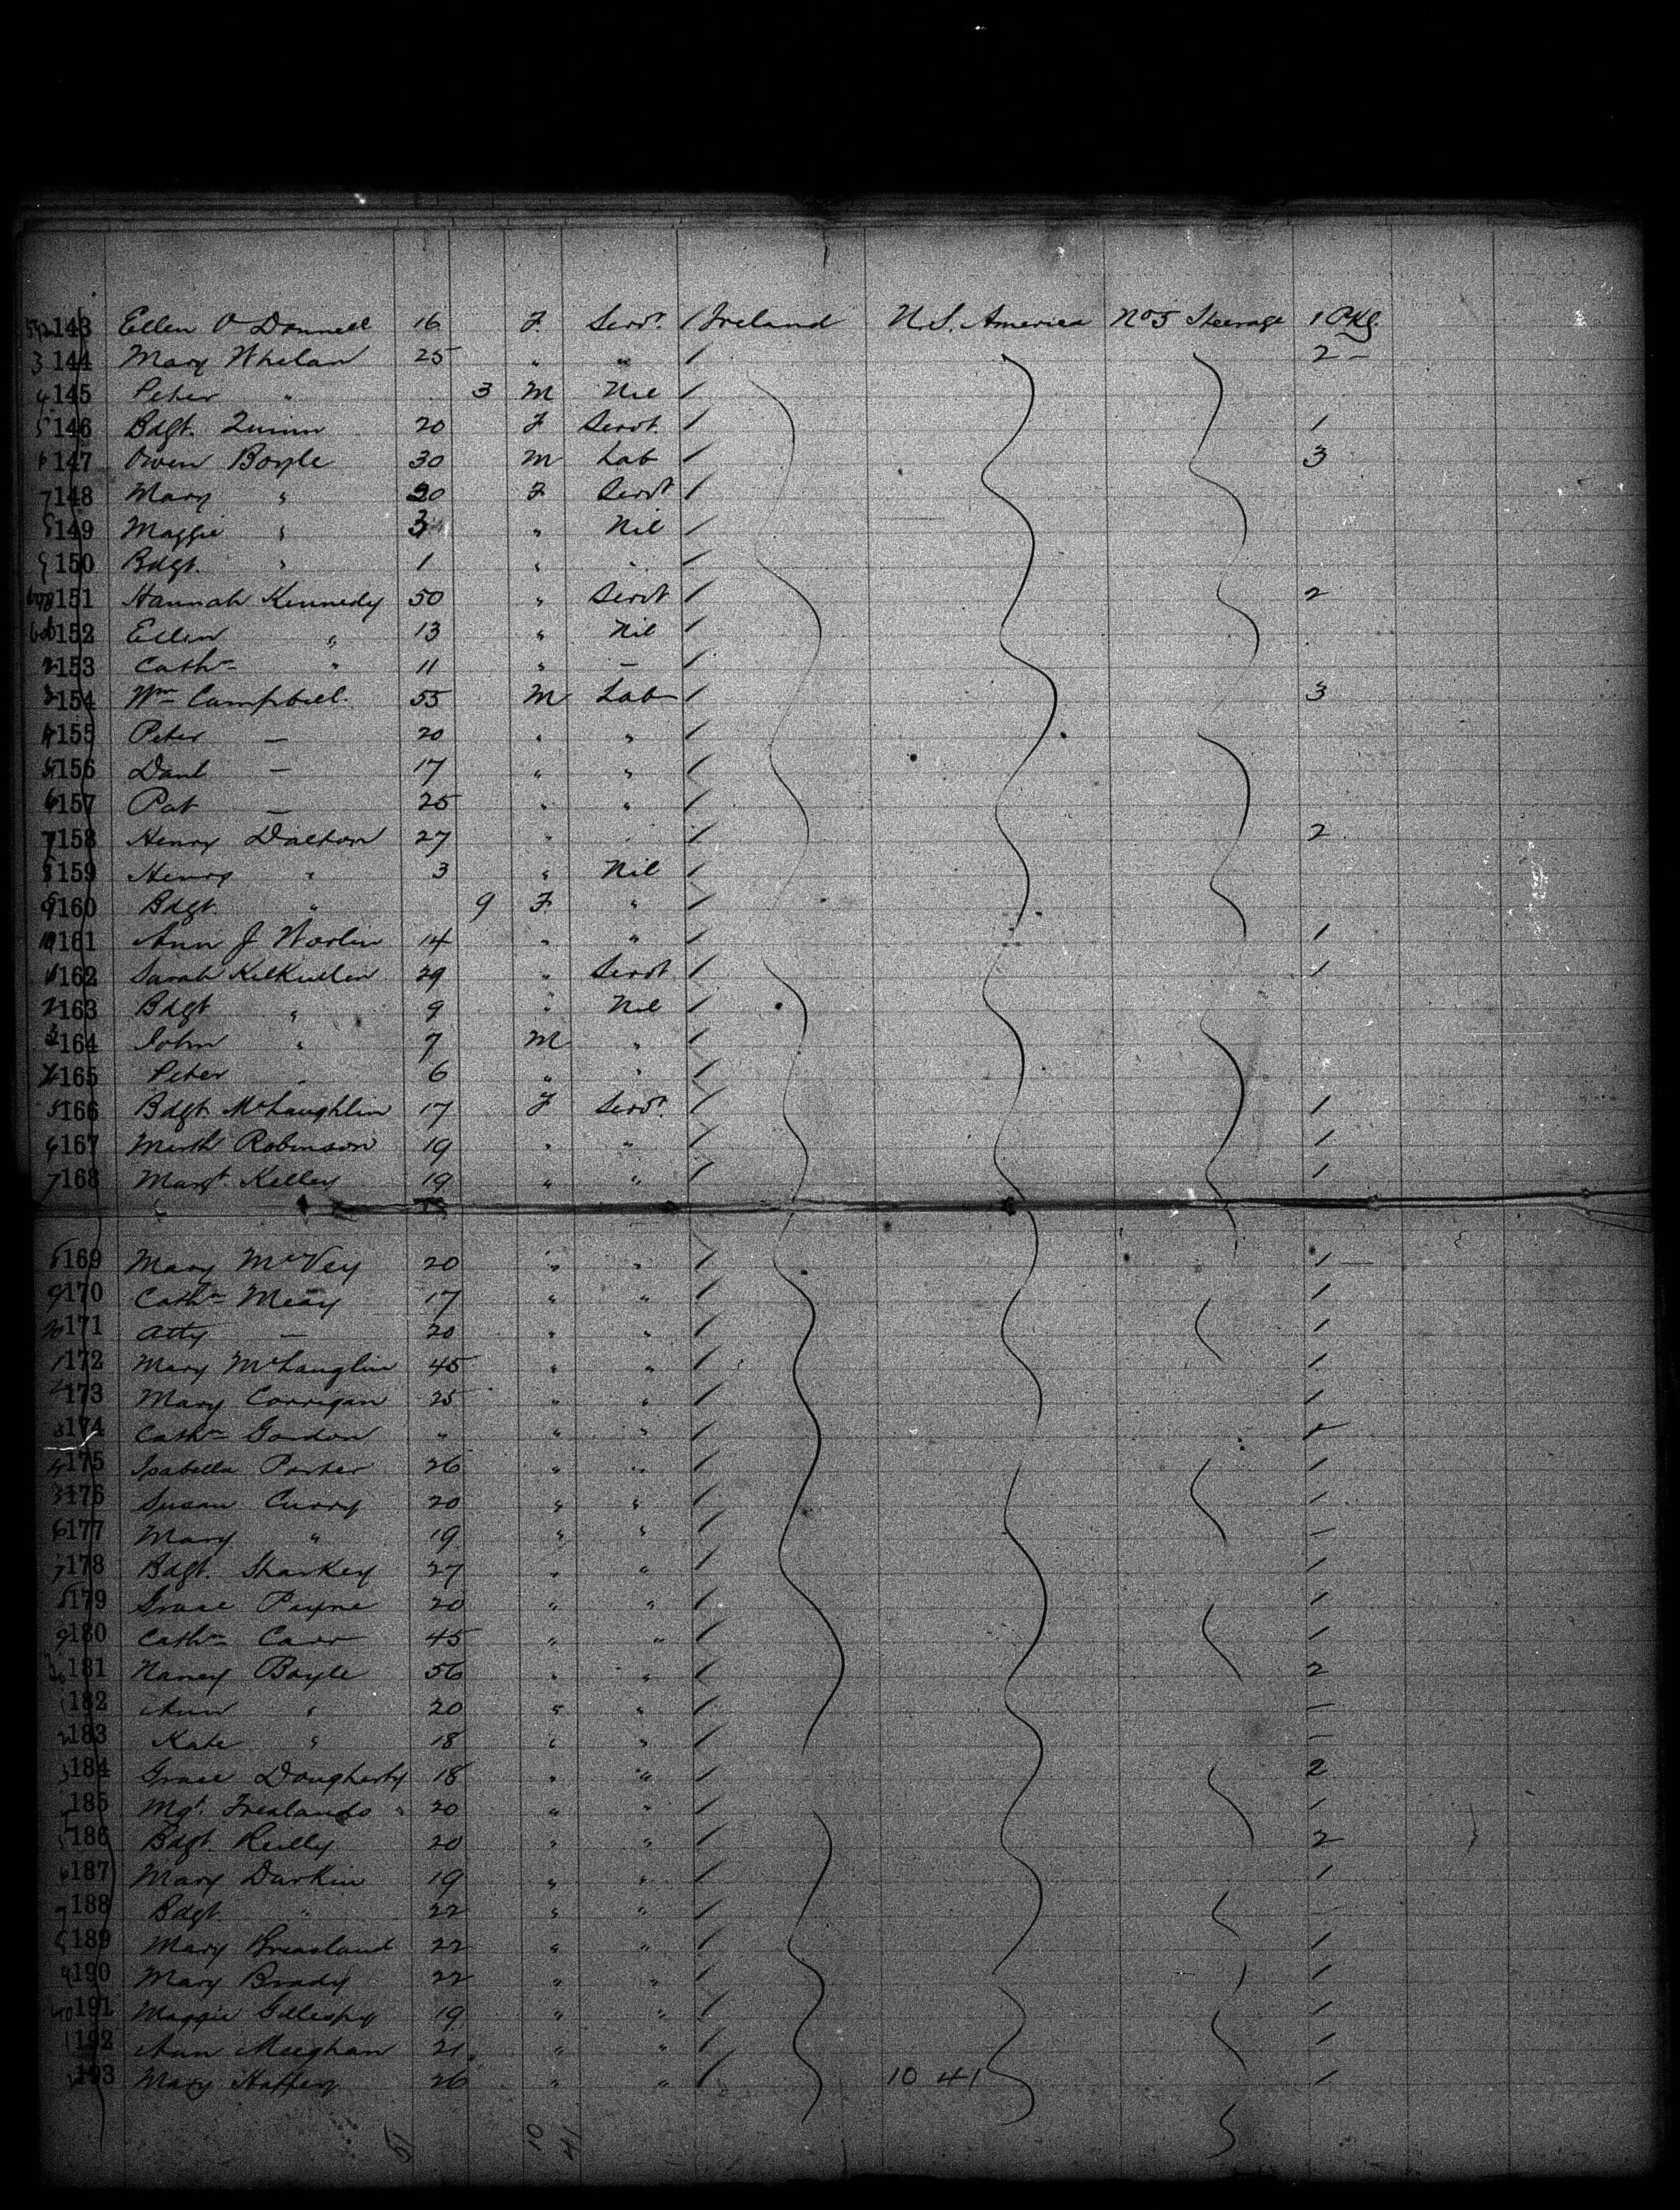 143 Ellen O'Donnell 16 F Servt / Ireland U.S. America No 5 Steerage 1 Pkg.
3 144 Mary Whelan 25 " " / 2 -
4 145 Peter " 3 M Nil /
5 146 Bdgt. Quinn 20 F Servt / 1
6 147 Owen Boyle 30 M Lab / 3
7 148 Mary " 30 F Servt /
8 149 Maggie " 3 " Nil /
9 150 Bdgt. " 1 " " /
151 Hannah Kennedy 50 " Servt / 2
152 Ellen " 13 " Nil /
2 153 Cathn " 11 " – /
3 154 Wm Campbell 55 M Lab / 3
4 155 Peter — 20 " " /
5 156 Danl — 17 " " /
6 157 Pat — 25 " " /
7 158 Henry Dalton 27 " " / 2
8 159 Henry " 3 " Nil /
9 160 Bdgt. " 9 F " /
10 161 Ann J 14 " " / 1
1 162 Sarah Kilkullen 29 " Servt / 1
2 163 Bdgt " 9 " Nil /
3 164 John " 7 M " /
4 165 Peter " 6 " " /
5 166 Bdgt. McLaughlin 17 F Servt / 1
6 167 Robinson 19 " " / 1
7 168 Margt. Kelley 19 " " / 1
8 169 Mary McVey 20 " " / 1 —
9 170 Cathn Meay 17 " " / 1
20 171 Atty — 20 " " / 1
1 172 Mary McLauglin 45 " " / 1
2 173 Mary Corrigan 25 " " / 1
3 174 Cathn Gordon " " " / 1
4 175 Isabella Porter 26 " " / 1
5 176 Susan Curry 20 " " / 1
6 177 Mary " 19 " " / —
7 178 Bdgt. Sharkey 27 " " / 1
8 179 Grace Payne 20 " " / 1
9 180 Cathn Carr 45 " " / 1
30 181 Nancy Boyle 56 " " / 2
1 182 Ann " 20 " " / —
2 183 Kate " 18 " " / —
3 184 Grace Dougherty 18 " " / 2
185 Mgt. 20 " " / 1
5 186 Bdgt. Reilly 20 " " / 2
6 187 Mary Durkin 19 " " / 1
7 188 Bdgt. " 22 " " /
8 189 Mary Breasland 22 " " / 1
9 190 Mary Brady 22 " " / 1
40 191 Maggie Gillespy 19 " " / 1
1 192 Ann Meeghan 21 " " / 1
193 Mary Haffey 26 " " / 10 41 1
51 10 41